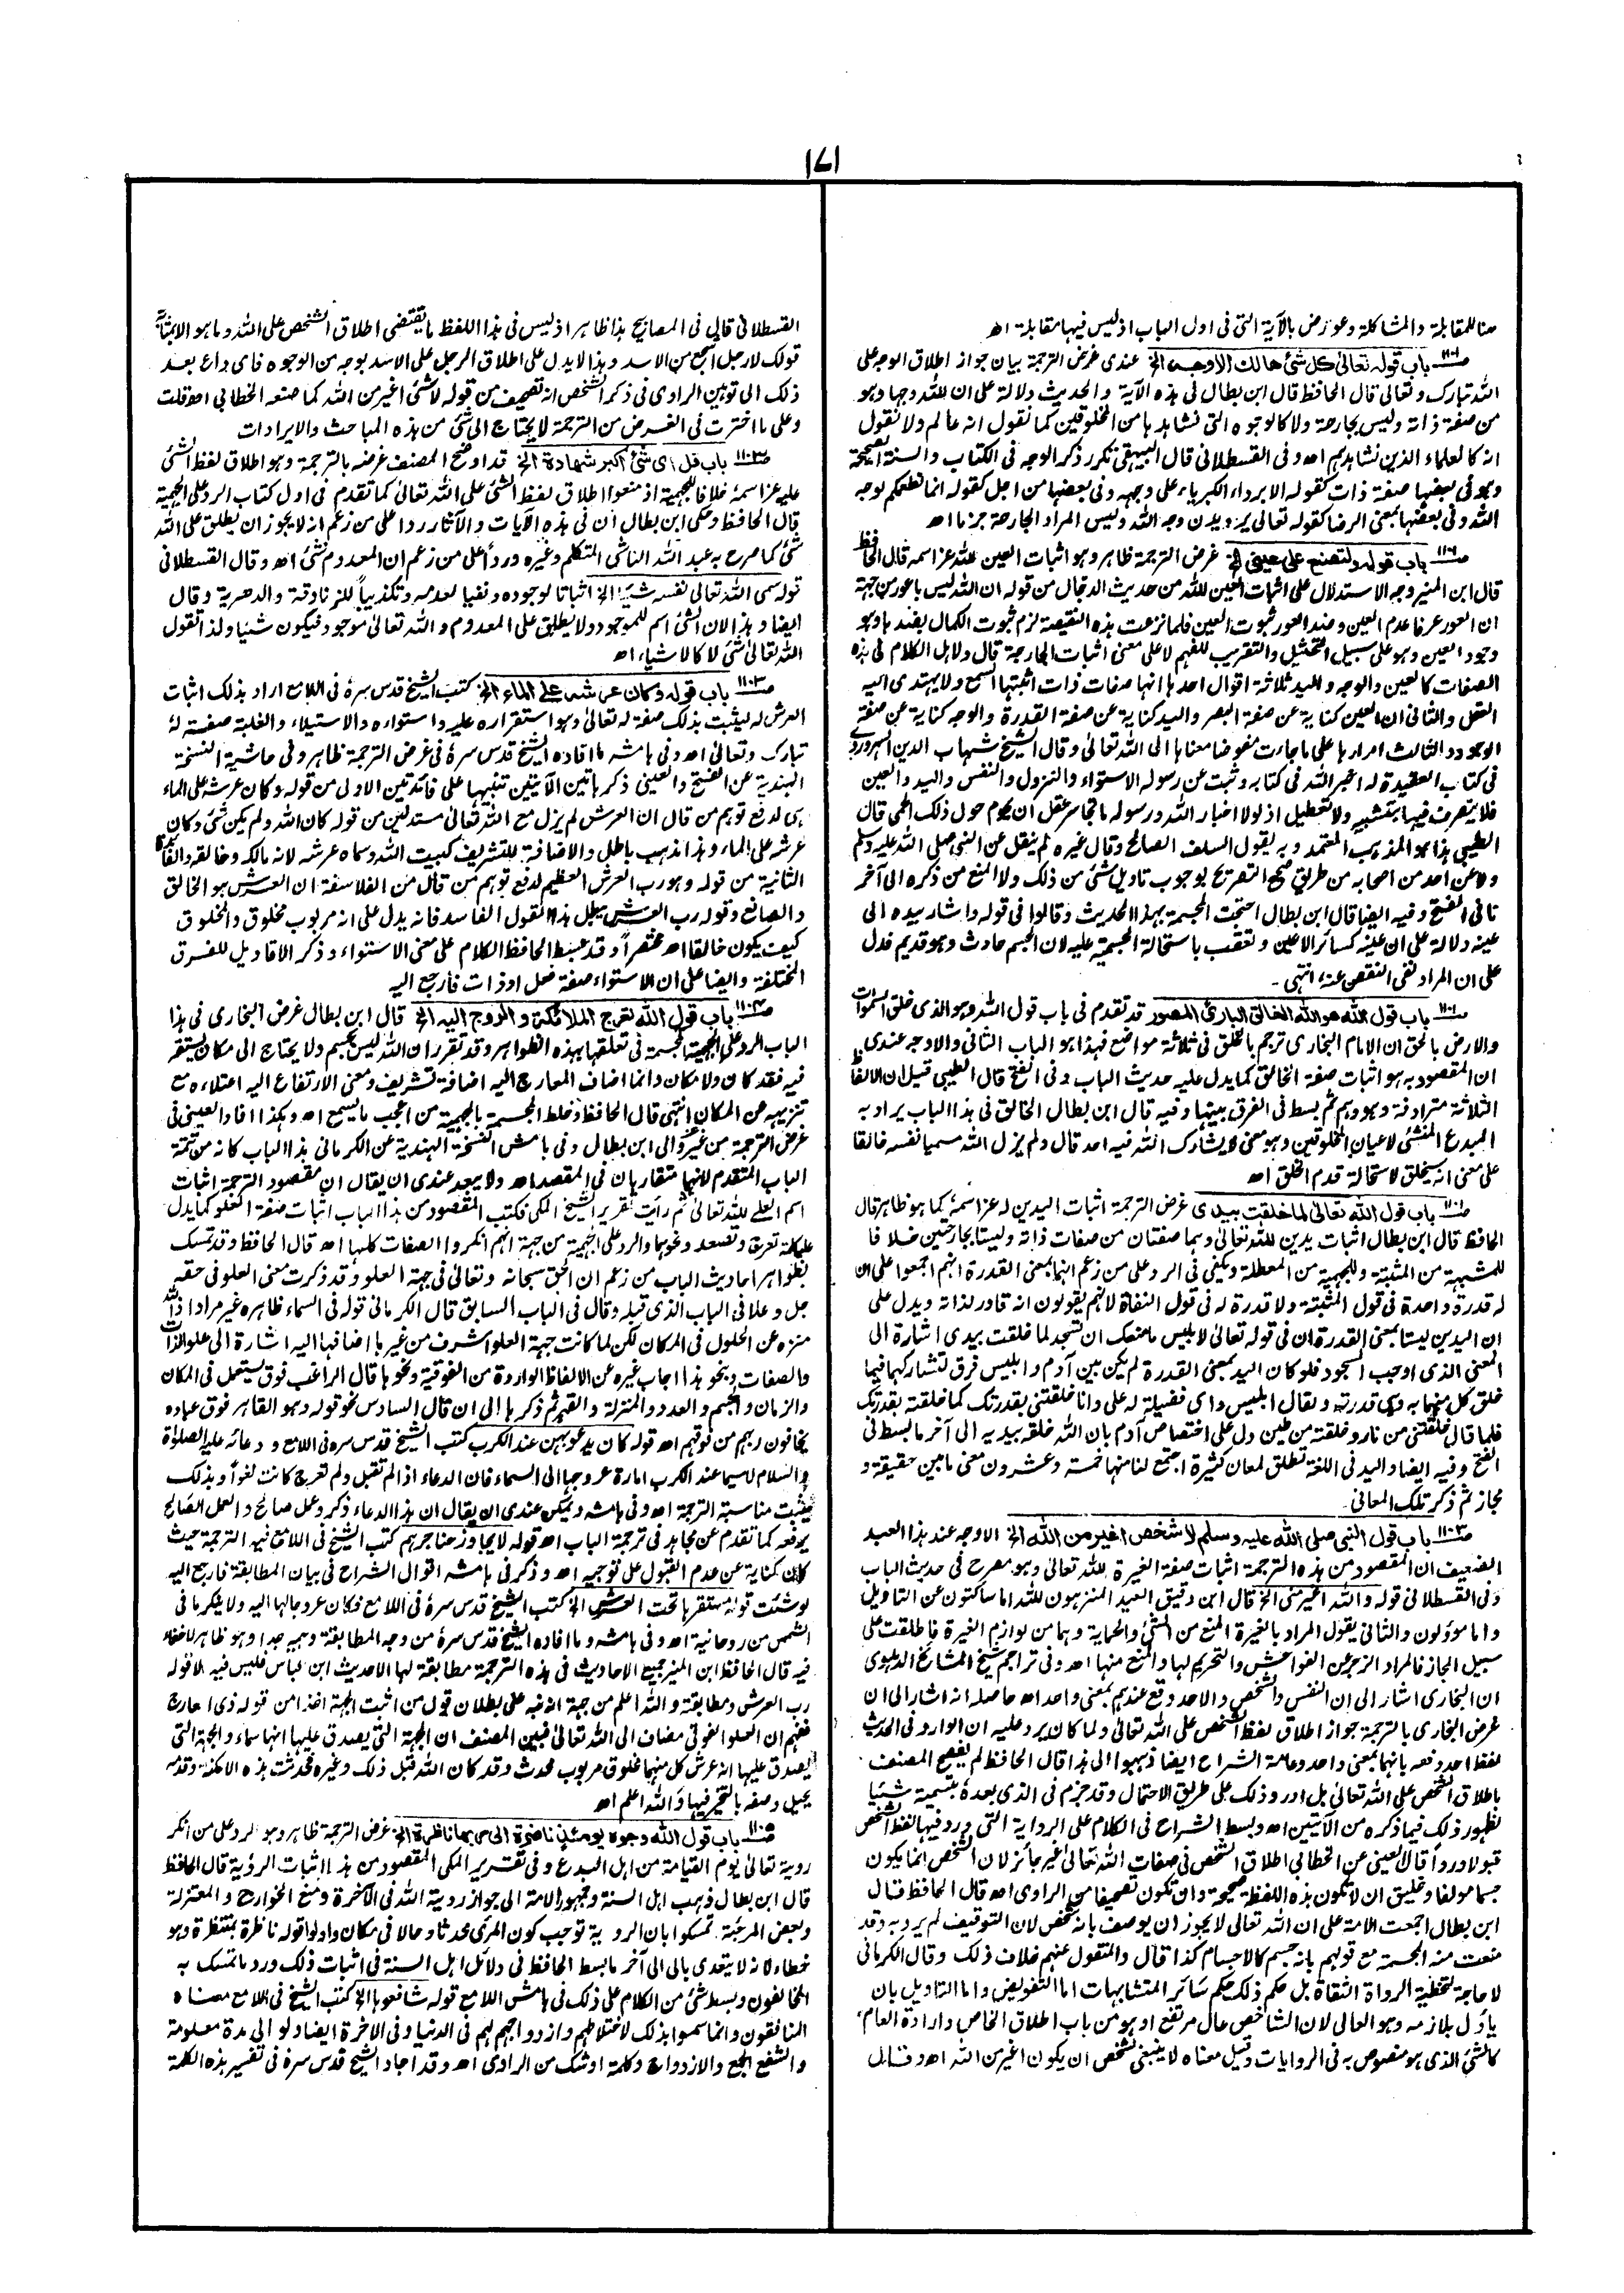 ١٧١
هنا للمقابلة والمشاكلة وعورض بالآية التى فى اول الباب اذ ليس فيها مقابلة اھ
باب قوله تعالى كل شئ هالك الا وجهه الخ عندى غرض الترجمة بيان جواز اطلاق الوجه على
الله تبارك وتعالى قال الحافظ قال ابن بطال فى هذه الآية والحديث دلالة على ان لله وجها وهو
من صفة ذاته وليس بجارحة ولا كالوجوه التى نشاهدها من المخلوقين كما نقول انه عالم ولا نقول
انه كالعلماء الذين نشاهدهم اھ وفى القسطلانى قال البيهقى تكرر ذكر الوجه فى الكتاب والسنة الصحيحة
وهو فى بعضها صفة ذات كقوله الا برداء الكبرياء على وجهه وفى بعضها من اجل كقوله انما نطعمكم لوجه
الله وفى بعضها بمعنى الرضا كقوله تعالى يريدون وجه الله وليس المراد الجارحة جزما اھ
باب قوله ولتصنع على عينى الخ غرض الترجمة ظاهر وهو اثبات العين لله عز اسمه قال الحافظ
قال ابن المنير وجه الاستدلال على اثبات العين لله من حديث الدجال من قوله ان الله ليس باعور من جهة
ان العور عرفا عدم العين وضد العور ثبوت العين فلما نزعت هذه النقيصة لزم ثبوت الكمال بضدها وهو
وجود العين وهو على سبيل التمثيل والتقريب للفهم لا على معنى اثبات الجارحة قال ولاهل الكلام فى هذه
الصفات كالعين والوجه واليد ثلاثة اقوال احدها انها صفات ذات اثبتها السمع ولا يهتدى اليه
العقل والثانى ان العين كناية عن صفة البصر واليد كناية عن صفة القدرة والوجه كناية عن صفة
الوجود والثالث امرارها على ما جاءت مفوضا معناها الى الله تعالى وقال الشيخ شهاب الدين السهروردى
فى كتاب العقيدة له اخبر الله فى كتابه وثبت عن رسوله الاستواء والنزول والنفس واليد والعين
فلا يتصرف فيها بتشبيه ولا تعطيل اذ لولا اخبار الله ورسوله ما تجاسر عقل ان يحوم حول ذلك الحمى قال
الطيبى هذا هو المذهب المعتمد وبه يقول السلف الصالح وقال غيره لم ينقل عن النبى صلى الله عليه وسلم
ولا عن احد من اصحابه من طريق صحيح التصريح بوجوب تاويل شئ من ذلك ولا المنع من ذكره الى آخر
ما فى الفتح وفيه ايضا قال ابن بطال احتجت المجسمة بهذا الحديث وقالوا فى قوله واشار بيده الى
عينه دلالة على ان عينه كسائر الاعين وتعقب باستحالة الجسمية عليه لان الجسم حادث وهو قديم فدل
على ان المراد نفى النقص عنه انتهى۔
باب قول الله هو الله الخالق البارئ المصور قد تقدم فى باب قول الله وهو الذى خلق السموات
والارض بالحق ان الامام البخارى ترجم بالخلق فى ثلاثة مواضع فهذا هو الباب الثانى والاوجه عندى
ان المقصود به هو اثبات صفة الخالق كما يدل عليه حديث الباب وفى الفتح قال الطيبى قيل ان الالفاظ
الثلاثة مترادفة وهو وهم ثم بسط فى الفرق بينها وفيه قال ابن بطال الخالق فى هذا الباب يراد به
المبدع المنشئ لاعيان المخلوقين وهو معنى لا يشارك الله فيه احد قال ولم يزل الله مسميا نفسه خالقا
على معنى انه سيخلق لاستحالة قدم الخلق اھ
باب قول الله تعالى لما خلقت بيدى غرض الترجمة اثبات اليدين له عز اسمه كما هو ظاهر قال
الحافظ قال ابن بطال اثبات يدين لله تعالى وهما صفتان من صفات ذاته وليستا بجارحتين خلافا
للمشبهة من المثبتة وللجهمية من المعطلة ويكفى فى الرد على من زعم انهما بمعنى القدرة انهم اجمعوا على ان
له قدرة واحدة فى قول المثبتة ولا قدرة له فى قول النفاة لانهم يقولون انه قادر لذاته ويدل على
ان اليدين ليستا بمعنى القدرة ان فى قوله تعالى لابليس ما منعك ان تسجد لما خلقت بيدى اشارة الى
المعنى الذى اوجب السجود فلو كان اليد بمعنى القدرة لم يكن بين آدم وابليس فرق لتشاركهما فيما
خلق كل منهما به وهى قدرته ولقال ابليس واى فضيلة له على وانا خلقتنى بقدرتك كما خلقته بقدرتك
فلما قال خلقتنى من نار وخلقته من طين دل على اختصاص آدم بان الله خلقه بيديه الى آخر ما بسط فى
الفتح وفيه ايضا واليد فى اللغة تطلق لمعان كثيرة اجتمع لنا منها خمسة وعشرون معنى ما بين حقيقة و
مجاز ثم ذكر تلك المعانى۔
باب قول النبى صلى الله عليه وسلم لا شخص اغير من الله الخ الاوجه عند هذا العبد
الضعيف ان المقصود من هذه الترجمة اثبات صفة الغيرة لله تعالى وهو مصرح فى حديث الباب
وفى القسطلانى قوله والله اغير منى الخ قال ابن دقيق العيد المنزهون لله اما ساكتون عن التاويل
واما مؤولون والثانى يقول المراد بالغيرة المنع من الشئ والحماية وهما من لوازم الغيرة فاطلقت على
سبيل المجاز فالمراد الزجر عن الفواحش والتحريم لها والمنع منها اھ وفى تراجم شيخ المشائخ الدهلوى
ان البخارى اشار الى ان النفس والشخص والاحد وقع عندهم بمعنى واحد اھ حاصله انه اشار الى ان
غرض البخارى بالترجمة جواز اطلاق لفظ الشخص على الله تعالى ولما كان يرد عليه ان الوارد فى الحديث
لفظ احد دفعه بانهما بمعنى واحد وعامة الشراح ايضا ذهبوا الى هذا قال الحافظ لم يفصح المصنف
باطلاق الشخص على الله تعالى بل اورد ذلك على طريق الاحتمال وقد جزم فى الذى بعده بتسمية شيئا
لظهور ذلك فيما ذكره من الآيتين اھ وبسط الشراح فى الكلام على الرواية التى ورد فيها لفظ الشخص
قبولا وردا قال العينى عن الخطابى اطلاق الشخص فى صفات الله تعالى غير جائز لان الشخص انما يكون
جسما مولفا وخليق ان لا تكون هذه اللفظة صحيحة وان تكون تصحيفا من الراوى اھ قال الحافظ قال
ابن بطال اجمعت الامة على ان الله تعالى لا يجوز ان يوصف بانه شخص لان التوقيف لم يرد به وقد
منعت منه المجسمة مع قولهم بانه جسم كالاجسام كذا قال والمنقول عنهم خلاف ذلك وقال الكرمانى
لا حاجة لتخطية الرواة الثقاة بل حكم ذلك حكم سائر المتشابهات اما التفويض واما التاويل بان
يأول بلازمه وهو العالى لان الشاخص عال مرتفع او هو من باب اطلاق الخاص وارادة العام
كالشئ الذى هو منصوص به فى الروايات وقيل معناه لا ينبغى لشخص ان يكون اغير من الله اھ وقال
القسطلانى قال فى المصابيح هذا ظاهر اذ ليس فى هذا اللفظ ما يقتضى اطلاق الشخص على الله وما هو الا بمثابة
قولك لا رجل اشجع من الاسد وهذا لا يدل على اطلاق الرجل على الاسد بوجه من الوجوه فاى داع بعد
ذلك الى توهين الراوى فى ذكر الشخص انه تصحيف من قوله لا شئ اغير من الله كما صنعه الخطابى اھ قلت
وعلى ما اخترت فى الغرض من الترجمة لا يحتاج الى شئ من هذه المباحث والايرادات
باب قل اى شئ اكبر شهادة الخ قد اوضح المصنف غرضه بالترجمة وهو اطلاق لفظ الشئ
عليه عز اسمه خلافا للجهمية اذ منعوا اطلاق لفظ الشئ على الله تعالى كما تقدم فى اول كتاب الرد على الجهمية
قال الحافظ وحكى ابن بطال ان فى هذه الآيات والآثار ردا على من زعم انه لا يجوز ان يطلق على الله
شئ كما صرح به عبد الله الناشى المتكلم وغيره وردا على من زعم ان المعدوم شئ اھ وقال القسطلانى
قوله سمى الله تعالى نفسه شيئا الخ اثباتا لوجوده ونفيا لعدمه وتكذيبا للزنادقة والدهرية وقال
ايضا وهذا لان الشئ اسم للموجود ولا يطلق على المعدوم والله تعالى موجود فيكون شيئا ولذا تقول
الله تعالى شئ لا كالاشياء اھ
باب قوله وكان عرشه على الماء الخ كتب الشيخ قدس سره فى اللامع اراد بذلك اثبات
العرش له ليثبت بذلك صفة له تعالى وهو استقراره عليه واستواءه والاستيلاء والغلبة صفة له
تبارك وتعالى اھ وفى هامشه ما افاده الشيخ قدس سره فى غرض الترجمة ظاهر وفى حاشية النسخة
الهندية عن الفتح والعينى ذكر هاتين الآيتين تنبيها على فائدتين الاولى من قوله وكان عرشه على الماء
هى لدفع توهم من قال ان العرش لم يزل مع الله تعالى مستدلين من قوله كان الله ولم يكن شئ وكان
عرشه على الماء وهذا مذهب باطل والاضافة للتشريف كبيت الله وسماه عرشه لانه مالكه وخالقه والفائدة
الثانية من قوله وهو رب العرش العظيم لدفع توهم من قال من الفلاسفة ان العرش هو الخالق
والصانع وقوله رب العرش يبطل هذا القول الفاسد فانه يدل على انه مربوب مخلوق والمخلوق
كيف يكون خالقا اھ مختصرا وقد بسط الحافظ الكلام على معنى الاستواء وذكر الاقاويل للفرق
المختلفة وايضا على ان الاستواء صفة فعل او ذات فارجع اليه
باب قول الله تعرج الملائكة والروح اليه الخ قال ابن بطال غرض البخارى فى هذا
الباب الرد على الجهمية المجسمة فى تعلقها بهذه الظواهر وقد تقرر ان الله ليس بجسم ولا يحتاج الى مكان يستقر
فيه فقد كان ولا مكان وانما اضاف المعارج اليه اضافة تشريف ومعنى الارتفاع اليه اعتلاءه مع
تنزيهه عن المكان انتهى قال الحافظ وخلط المجسمة بالجهمية من اعجب ما يسمع اھ وهكذا افاد العينى فى
غرض الترجمة من غير عزو الى ابن بطال وفى هامش النسخة الهندية عن الكرمانى هذا الباب كانه من تتمة
الباب المتقدم لانهما متقاربان فى المقصد اھ ولا يبعد عندى ان يقال ان مقصود الترجمة اثبات
اسم العلى لله تعالى ثم رأيت تقرير الشيخ المكى فكتب المقصود من هذا الباب اثبات صفة العلو كما يدل
عليه كلمة تعرج وتصعد ونحوهما والرد على الجهمية من جهة انهم انكروا الصفات كلها اھ قال الحافظ وقد تمسك
بظواهر احاديث الباب من زعم ان الحق سبحانه وتعالى فى جهة العلو وقد ذكرت معنى العلو فى حقه
جل وعلا فى الباب الذى قبله وقال فى الباب السابق قال الكرمانى قوله فى السماء ظاهره غير مراد اذ الله
منزه عن الحلول فى المكان لكن لما كانت جهة العلو اشرف من غيرها اضافها اليه اشارة الى علو الذات
والصفات وبنحو هذا اجاب غيره عن الالفاظ الواردة من الفوقية ونحوها قال الراغب فوق يستعمل فى المكان
والزمان والجسم والعدد والمنزلة والقهر ثم ذكرها الى ان قال السادس نحو قوله وهو القاهر فوق عباده
يخافون ربهم من فوقهم اھ قوله كان يدعو بهن عند الكرب كتب الشيخ قدس سره فى اللامع ودعائه عليه الصلوٰة
والسلام لاسيما عند الكرب امارة عروجها الى السماء فان الدعاء اذا لم تقبل ولم تعرج كانت لغوا وبذلك
يثبت مناسبة الترجمة اھ وفى هامشه ويمكن عندى ان يقال ان هذا الدعاء ذكر وعمل صالح والعمل الصالح
يرفعه كما تقدم عن مجاهد فى ترجمة الباب اھ قوله لا يجاوز حناجرهم كتب الشيخ فى اللامع فيه الترجمة حيث
كان كناية عن عدم القبول على توجيه اھ وذكر فى هامشه اقوال الشراح فى بيان المطابقة فارجع اليه
لو شئت قوله مستقرها تحت العرش الخ كتب الشيخ قدس سره فى اللامع فكان عروجا لها اليه ولا ينكر ما فى
الشمس من روحانية اھ وفى هامشه وما افاده الشيخ قدس سره من وجه المطابقة وجيه جدا وهو ظاهر لا خفاء
فيه قال الحافظ ابن المنير جميع الاحاديث فى هذه الترجمة مطابقة لها الا حديث ابن عباس فليس فيه الا قوله
رب العرش ومطابقته والله اعلم من جهة انه نبه على بطلان قول من اثبت الجهة اخذا من قوله ذى المعارج
ففهم ان العلو الفوقى مضاف الى الله تعالى فبين المصنف ان الجهة التى يصدق عليها انها سماء والجهة التى
يصدق عليها انه عرش كل منهما مخلوق مربوب محدث وقد كان الله قبل ذلك وغيره فحدثت هذه الامكنة وقدمه
يحيل وصفه بالتحيز فيها والله اعلم اھ
باب قول الله وجوه يومئذ ناضرة الى ربها ناظرة الخ غرض الترجمة ظاهر وهو الرد على من انكر
روية تعالى يوم القيامة من اهل البدع وفى تقرير المكى المقصود من هذا اثبات الرؤية قال الحافظ
قال ابن بطال ذهب اهل السنة وجمهور الامة الى جواز روية الله فى الآخرة ومنع الخوارج والمعتزلة
وبعض المرجئة تمسكوا بان الروية توجب كون المرئ محدثا وحالا فى مكان واولوا قوله ناظرة بمنتظرة وهو
خطاء لانه لا يتعدى بالى الى آخر ما بسط الحافظ فى دلائل اهل السنة فى اثبات ذلك ورد ما تمسك به
المخالفون وبسط شئ من الكلام على ذلك فى هامش اللامع قوله شافعوها الخ كتب الشيخ فى اللامع معناه
المنافقون وانما سموا بذلك لاختلاطهم وازدواجهم بهم فى الدنيا وفى الآخرة ايضا ولو الى مدة معلومة
والشفع الجمع والازدواج وكلمة او شك من الراوى اھ وقد اجاد الشيخ قدس سره فى تفسير هذه الكلمة